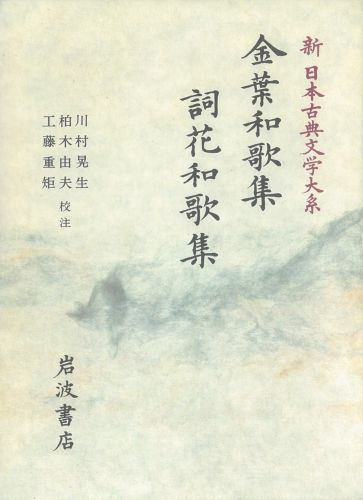 新 日本古典文学大系
金葉和歌集
詞花和歌集
川村晃生
柏木由夫 校注
工藤重矩
岩波書店